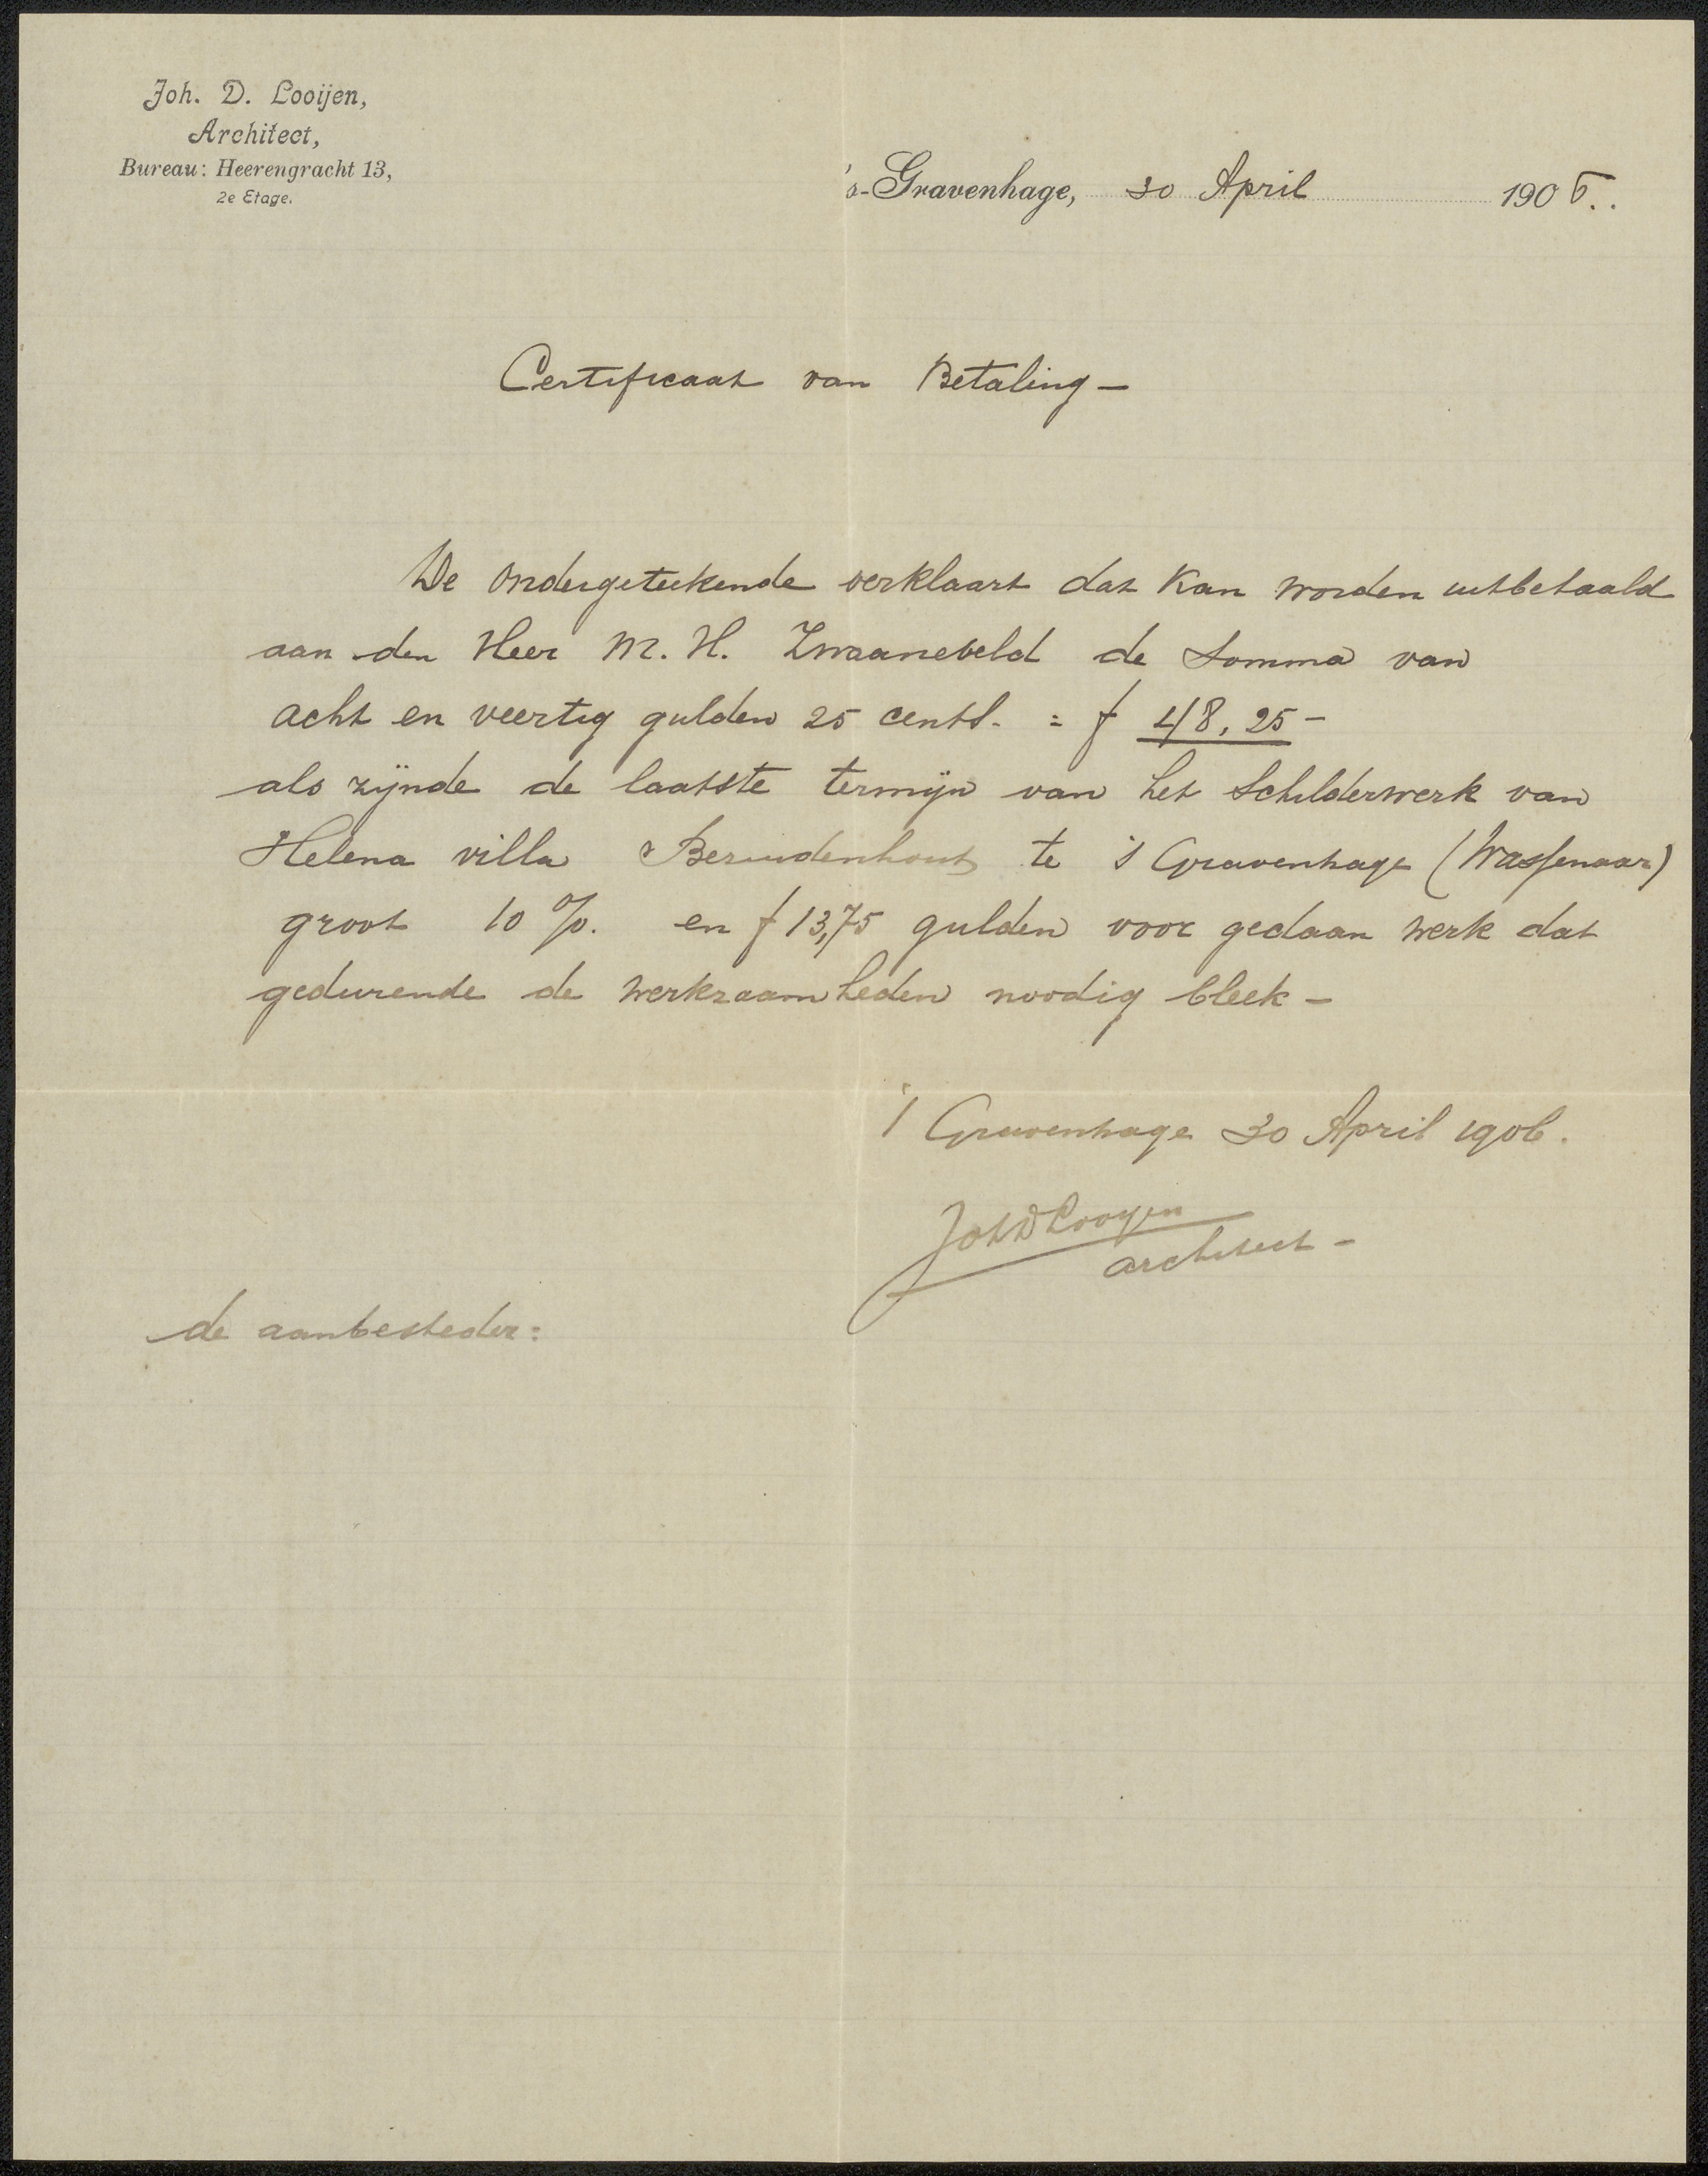 Joh. D. Looijen,
Architect,
Bureau: Heerengracht 13,
2e Etage.
's-Gravenhage, 30 April 1906..
Certificaat van Betaling -
De ondergeteekende verklaart dat kan worden uitbetaald
aan den Heer M. H. Zwaaneveld de somma van
acht en veertig gulden 25 cents. = f 48,25 -
als zijnde de laatste termijn van het schilderwerk van
Helena villa Bezuidenhout te 's Gravenhage (Wassenaar)
groot 10 %. en f 13,75 gulden voor gedaan werk dat
gedurende de werkzaamheden noodig bleek -
's Gravenhage 30 April 1906.
Joh D Looyen
architect -
de aanbesteder: